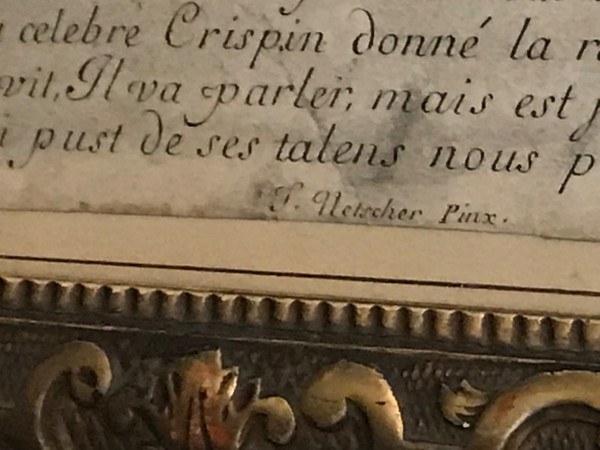 celebre Crispin donné la
vit, Il va parler, mais est
pust de ses talens nous p
T. Netscher Pinx.